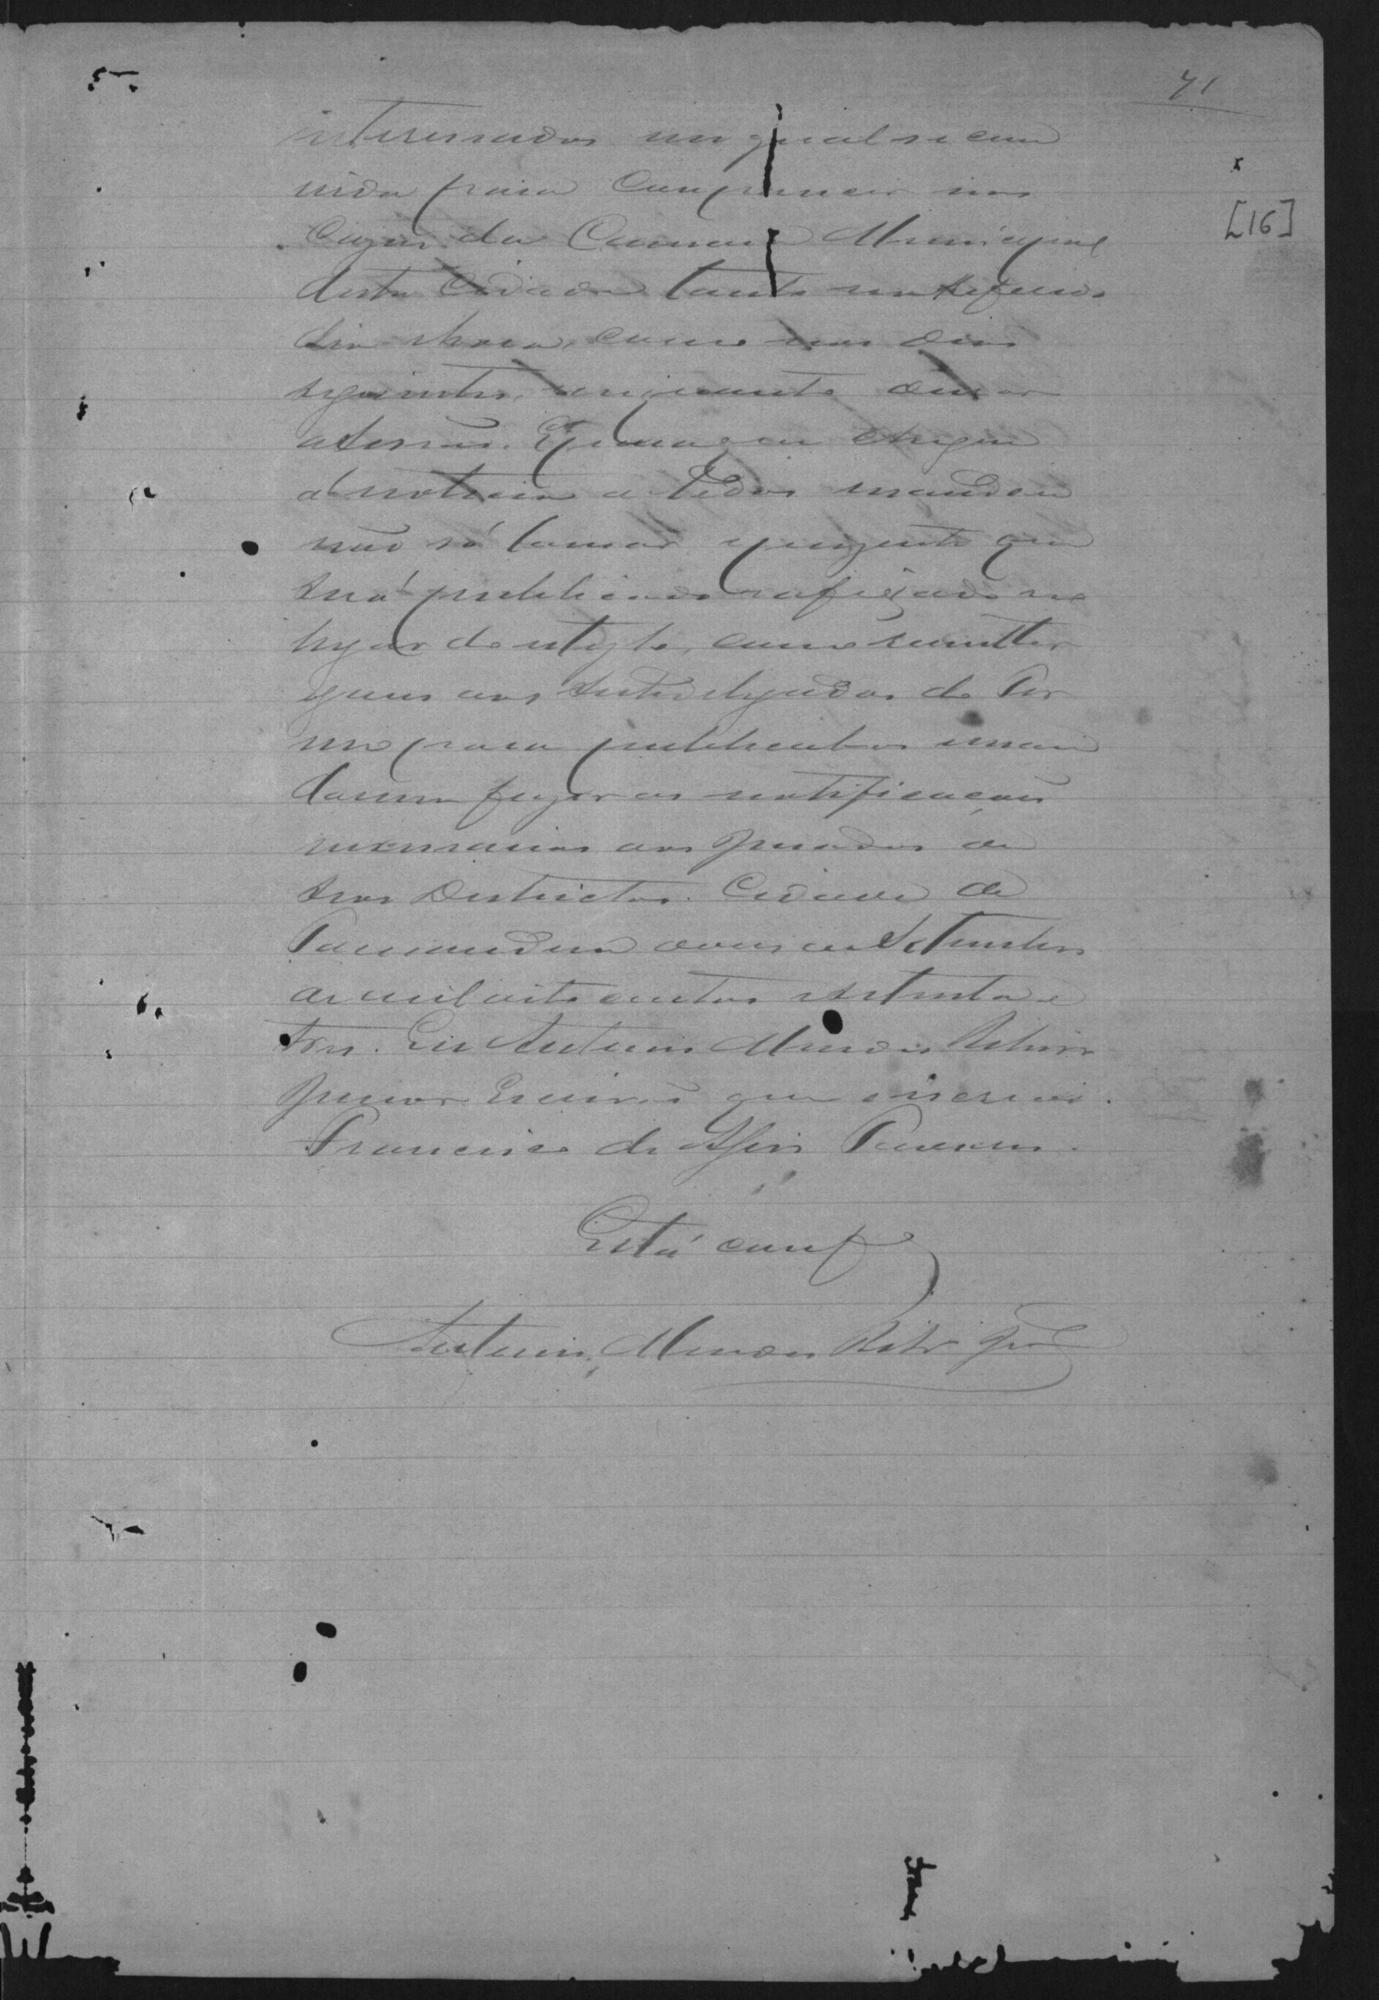 71
[16]
interessados em geral se con
vida para comparecer nas
Cazas da Camara Municipal
desta Cidade tanto no referido
dia e hora, como nos dias
seguintes, enquanto durar
a sessão. E para que chegue
a noticia a todos mandou
não só lavrar o presente que
será publicado e afixado no
lugar do estylo, como remetter
iguaes aos Subdelegados do Ter
mo para publical-os e man
darem fazer as notificações
necessarias aos Jurados de
seus Districtos. Cidade de
Parananguá Setembro
de mil oito centos e setenta e
tres. Eu Antonio Mendes Ribeiro
Junior Escrivão que o escrevi.
Francisco de Assis
Está conf
Antonio Mendes Ribr Jor